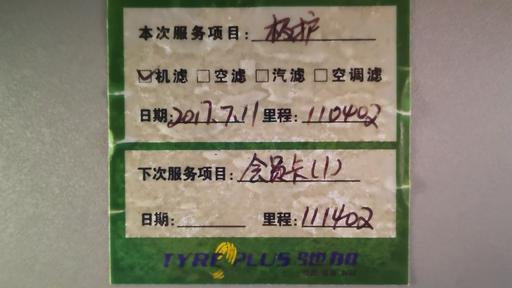 本次服务项目: 极护
☑机滤 □空滤 □汽滤 □空调滤
日期: 2017.7.11 里程: 110402
下次服务项目: 会员卡(1)
日期: 里程: 111402
TYREPLUS 驰加